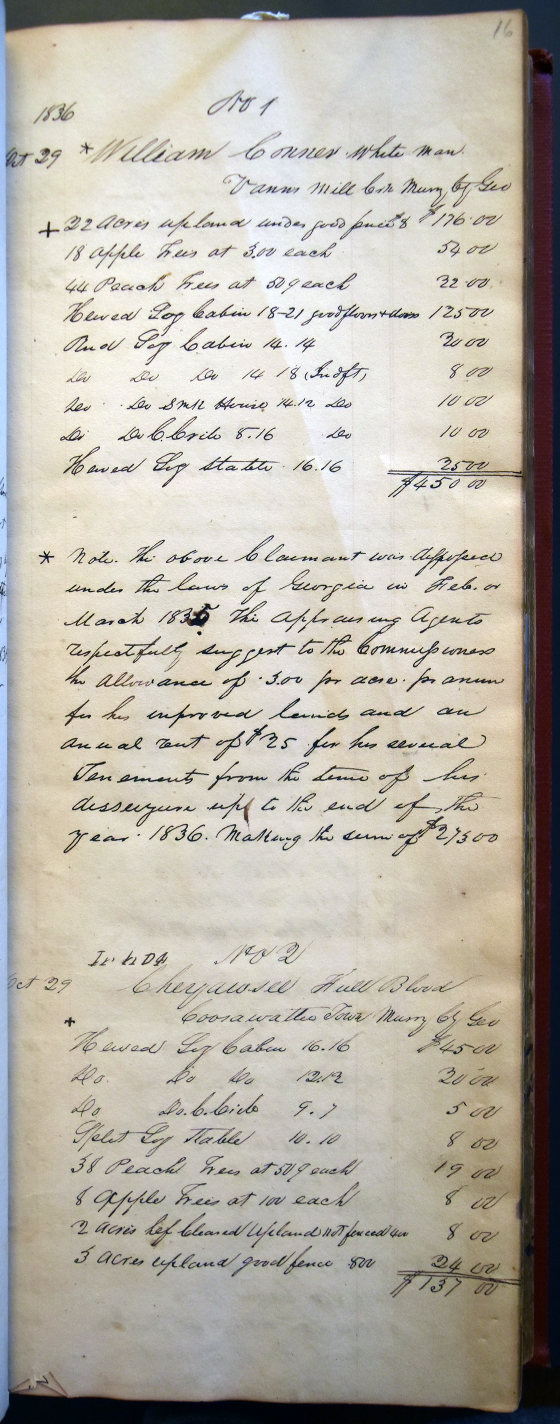 16
No 1
1836
Oct 29 * William Conner White man
Vanns Mill Crk Murry Cty Geo
+ 22 Acres upland under good fence $8 $176.00
18 Apple Trees at 3.00 each 54 00
44 Peach Trees at 50¢ each 22 00
Hewed Log Cabin 18-21 good floors & doors 125 00
Rnd Log Cabin 14.14 20 00
Do Do Do 14 18 (Indft) 8 00
Do Do Smk House 14.12 Do 10 00
Do Do C. Crib 8.16 Do 10 00
Hewed Log Stable 16.16 25 00
$450 00
* Note. The above Claimant was disposed
under the laws of Georgia in Feb. or
March 1835 The Appraising Agents
respectfully suggest to the Commissioners
the allowance of 3.00 pr acre pr anum
for his improved lands and an
anual rent of $25 for his several
Tenements from the time of his
disseyure up to the end of the
year 1836. Making the sum of $273 00
No 2
Oct 29 Cheyawsee Full Blood
+ Coosawattee Town Murry Cty Geo
Hewed Log Cabin 16.16 $45 00
Do. Do Do 12.12 20 00
Do Do. C. Crib 9.7 5 00
Split Log Stable 10.10 8 00
38 Peach Trees at 50¢ each 19 00
8 Apple Trees at 100 each 8 00
2 Acres hef Cleared Upland not fenced 400 8 00
3 Acres upland good fence 800 24 00
$137 00